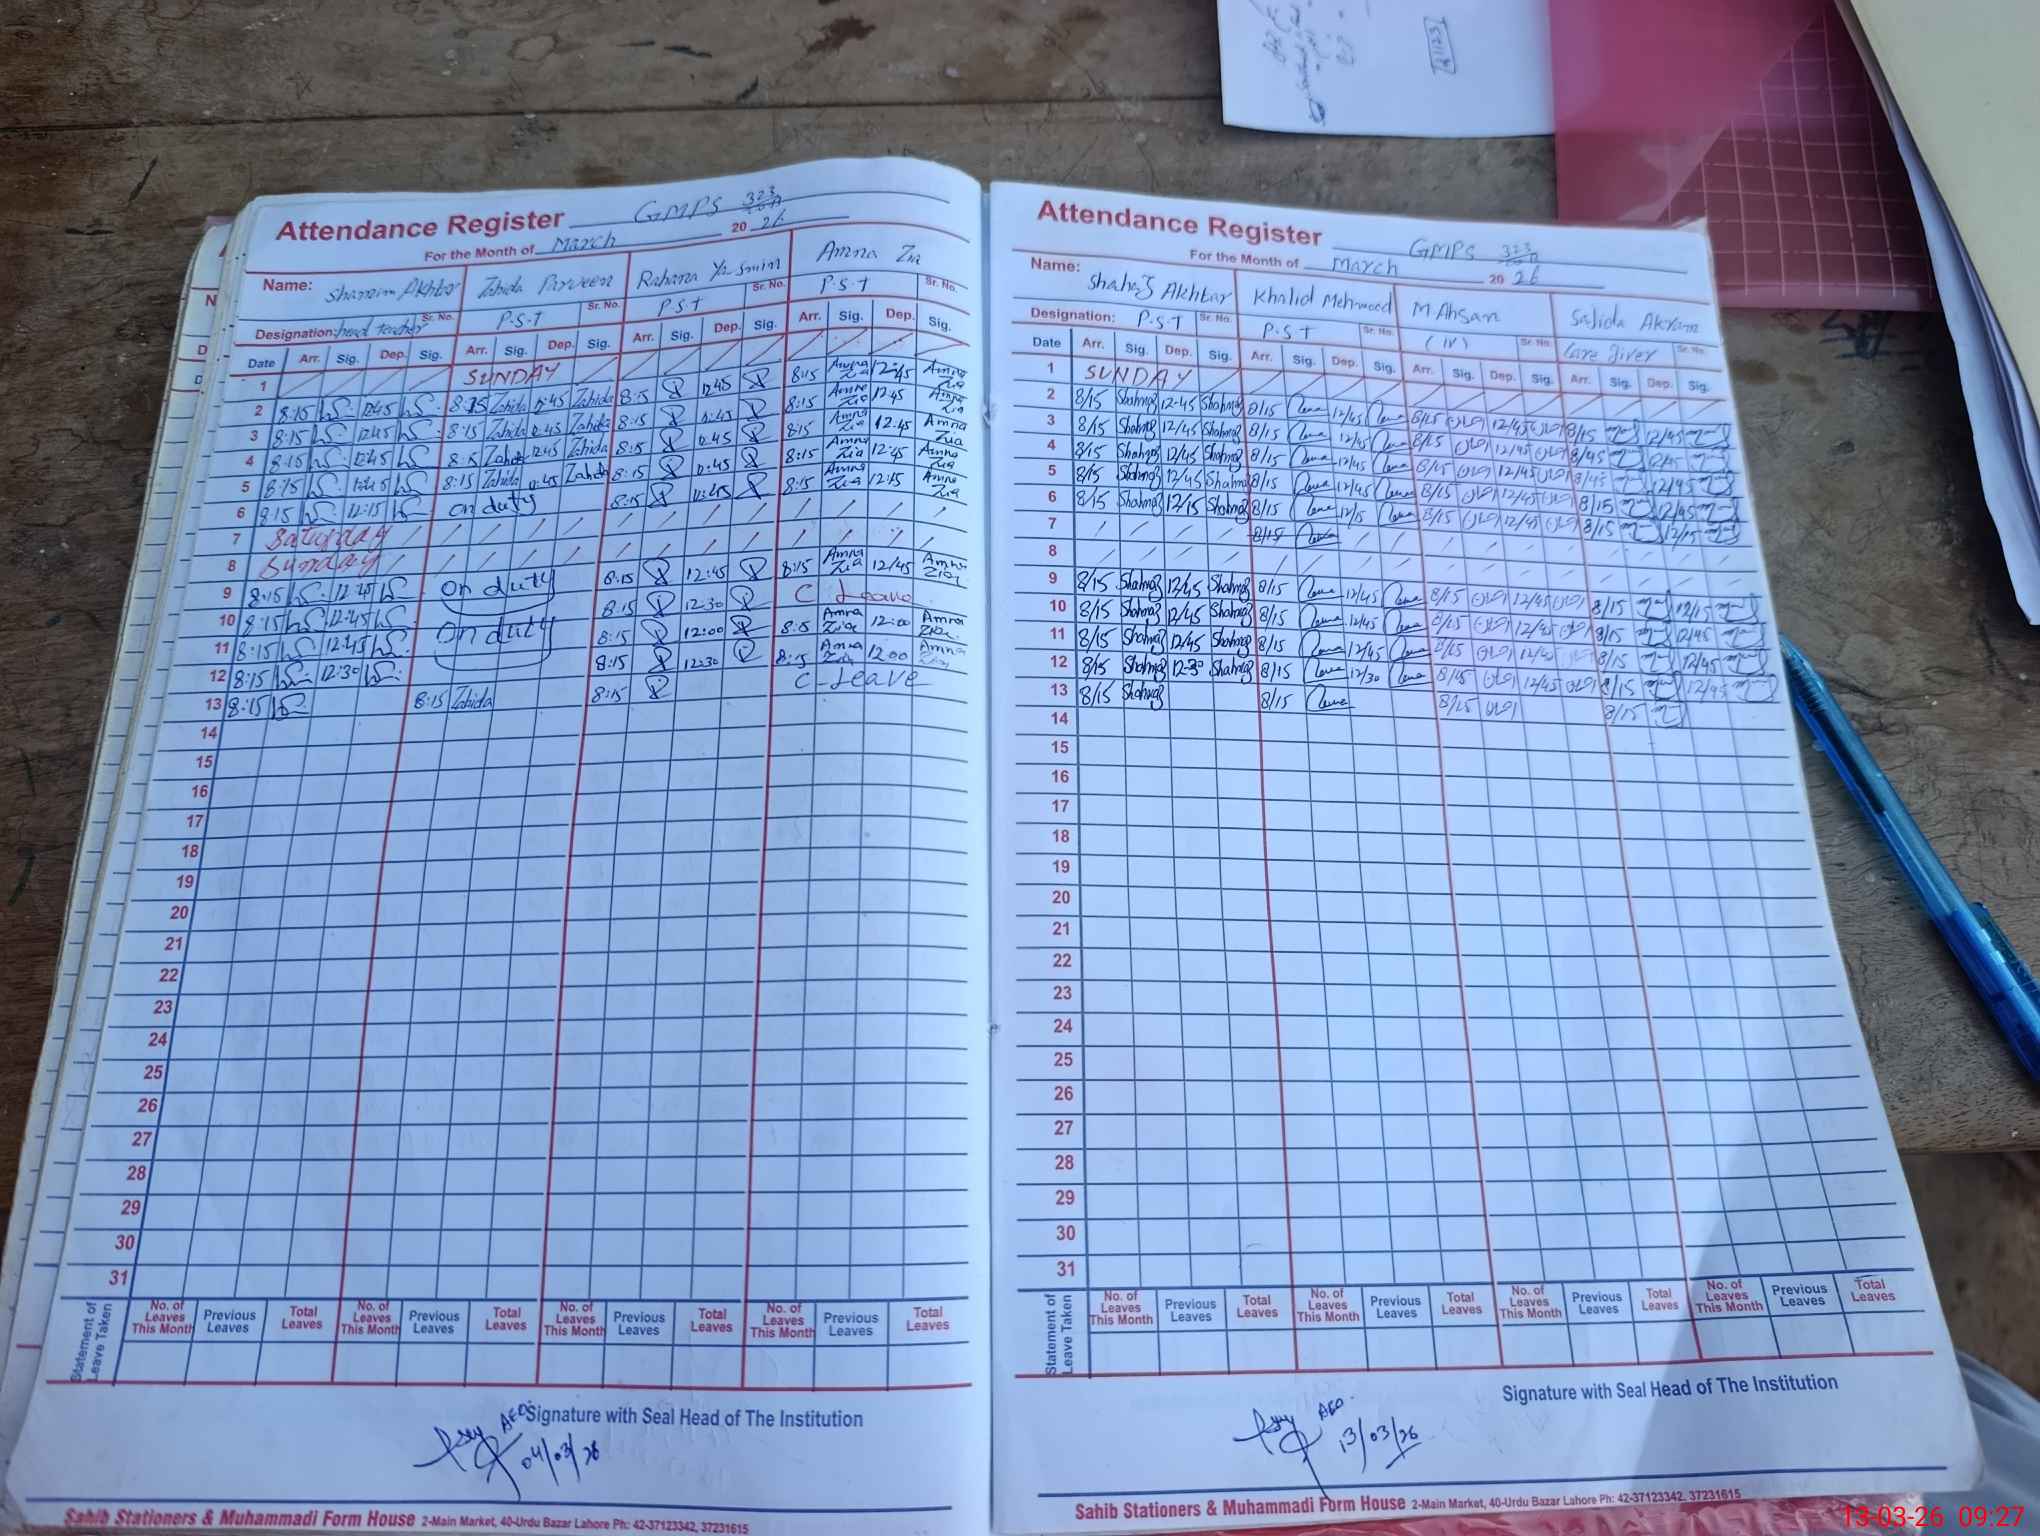 Attendance Register GMPS 323
For the Month of March 20 26
Name: Shamim Akhtar Zahida Parveen Rahana Yasmin Amna Zia
Sr. No. Sr. No. Sr. No. Sr. No.
Designation: head teacher P.S.T P.S.T P.S.T
Date Arr. Sig. Dep. Sig. Arr. Sig. Dep. Sig. Arr. Sig. Dep. Sig. Arr. Sig. Dep. Sig.
1 SUNDAY
2 8:15 12:45 8:15 Zahida 12:45 Zahida 8:15 12:45 8:15 Amna Zia 12:45 Amna Zia
3 8:15 12:45 8:15 Zahida 12:45 Zahida 8:15 12:45 8:15 Amna Zia 12:45 Amna Zia
4 8:15 12:45 8:15 Zahida 12:45 Zahida 8:15 12:45 8:15 Amna Zia 12:45 Amna Zia
5 8:15 12:45 8:15 Zahida 12:45 Zahida 8:15 12:45 8:15 Amna Zia 12:45 Amna Zia
6 8:15 12:15 on duty 8:15 8:15 Amna Zia 12:15 Amna Zia
7 Saturday
8 Sunday
9 8:15 12:45 on duty 8:15 12:45 8:15 Amna Zia 12/45 Amna Zia
10 8:15 12:45 8:15 12:30 C Leave
11 8:15 12:45 on duty 8:15 12:00 8:15 Amna Zia 12:00 Amna Zia
12 8:15 12:30 8:15 12:30 8:15 Amna Zia 12:00 Amna Zia
13 8:15 8:15 Zahida 8:15 C-Leave
14
15
16
17
18
19
20
21
22
23
24
25
26
27
28
29
30
31
Statement of Leave Taken
No. of Leaves This Month Previous Leaves Total Leaves No. of Leaves This Month Previous Leaves Total Leaves No. of Leaves This Month Previous Leaves Total Leaves No. of Leaves This Month Previous Leaves Total Leaves
AEO Signature with Seal Head of The Institution
04/03/26
Sahib Stationers & Muhammadi Form House 2-Main Market, 40-Urdu Bazar Lahore Ph: 42-37123342, 37231615
Attendance Register GMPS 323
For the Month of March 20 26
Name: Shahnaz Akhtar Khalid Mehmood M Ahsan Sajida Akram
Designation: P.S.T Sr. No. P.S.T Sr. No. (IV) Sr. No. Care giver Sr. No.
Date Arr. Sig. Dep. Sig. Arr. Sig. Dep. Sig. Arr. Sig. Dep. Sig. Arr. Sig. Dep. Sig.
1 SUNDAY
2 8/15 Shahnaz 12-45 Shahnaz 8/15 12/45 8/15 12/45 8/15 12/45
3 8/15 Shahnaz 12/45 Shahnaz 8/15 12/45 8/15 12/45 8/45 12/45
4 8/15 Shahnaz 12/45 Shahnaz 8/15 12/45 8/15 12/45 8/45 12/45
5 8/15 Shahnaz 12/45 Shahnaz 8/15 12/45 8/15 12/45 8/15 12/45
6 8/15 Shahnaz 12/15 Shahnaz 8/15 12/15 8/15 12/45 8/15 12/15
7 8/15
8
9 8/15 Shahnaz 12/45 Shahnaz 8/15 12/45 8/15 12/45 8/15 12/15
10 8/15 Shahnaz 12/45 Shahnaz 8/15 12/45 8/15 12/45 8/15 12/45
11 8/15 Shahnaz 12/45 Shahnaz 8/15 12/45 8/15 12/45 8/15 12/45
12 8/15 Shahnaz 12-30 Shahnaz 8/15 12/30 8/15 12/45 8/15 12/45
13 8/15 Shahnaz 8/15 8/15 8/15
14
15
16
17
18
19
20
21
22
23
24
25
26
27
28
29
30
31
Statement of Leave Taken
No. of Leaves This Month Previous Leaves Total Leaves No. of Leaves This Month Previous Leaves Total Leaves No. of Leaves This Month Previous Leaves Total Leaves No. of Leaves This Month Previous Leaves Total Leaves
Signature with Seal Head of The Institution
AEO
13/03/26
Sahib Stationers & Muhammadi Form House 2-Main Market, 40-Urdu Bazar Lahore Ph: 42-37123342, 37231615
13-03-26 09:27